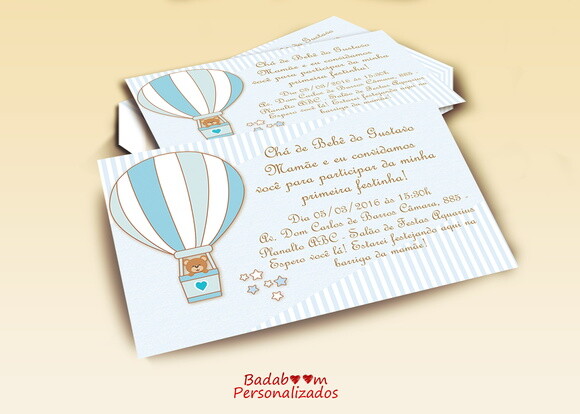 Chá de Bebê do Gustavo
Mamãe e eu convidamos
você para participar da minha
primeira festinha!
Dia 05/03/2016 às 15:30h
Av. Dom Carlos de Barros Câmara, 885 -
Planalto ABC - Salão de Festas Aquarius
Espero você lá! Estarei festejando aqui na
barriga da mamãe!
Chá de Bebê do Gustavo
Mamãe e eu convidamos
você para participar da minha
primeira festinha!
Dia 05/03/2016 às 15:30h
Av. Dom Carlos de Barros Câmara, 885 -
Planalto ABC - Salão de Festas Aquarius
Espero você lá! Estarei festejando aqui na
barriga da mamãe!
Badaboom
Personalizados